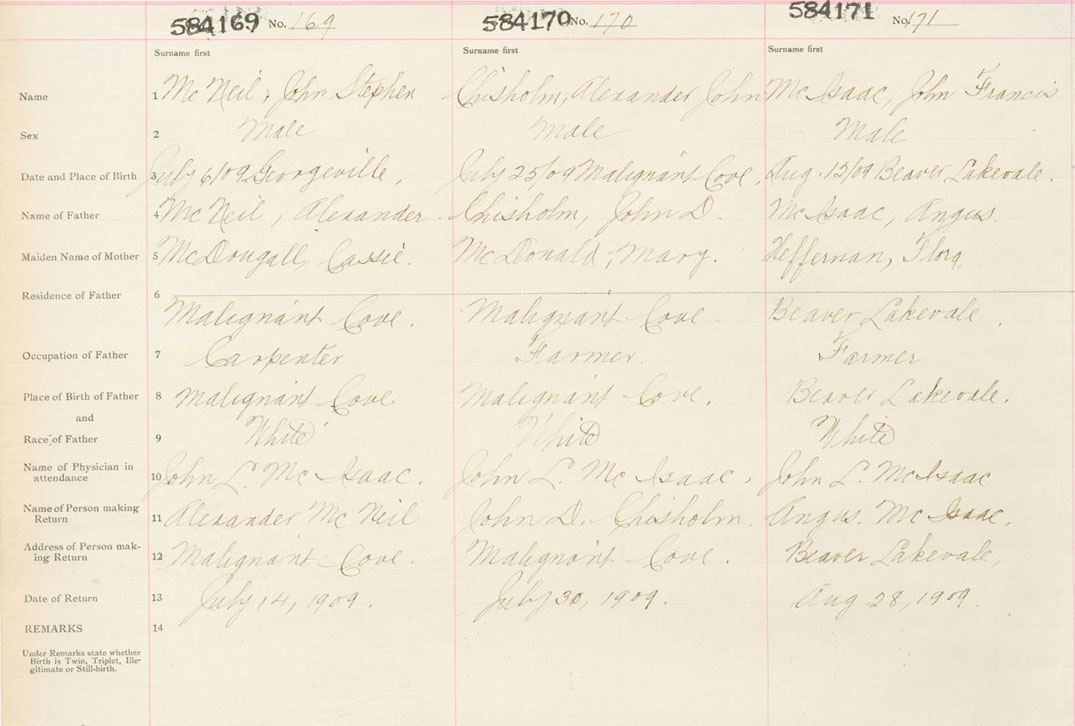 584169 No. 169 584170 No. 170 584171 No. 171
Surname first Surname first Surname first
Name 1 McNeil, John Stephen Chisholm, Alexander John McIsaac, John Francis
Sex 2 Male Male Male
Date and Place of Birth 3 July 6/09 Georgeville, July 25/09 Malignant Cove, Aug 15/09 Beaver Lakevale.
Name of Father 4 McNeil, Alexander. Chisholm, John D. McIsaac, Angus.
Maiden Name of Mother 5 McDougall, Cassie. McDonald, Mary. Heffernan, Flora.
Residence of Father 6
Malignant Cove. Malignant Cove Beaver Lakevale.
Occupation of Father 7 Carpenter Farmer. Farmer
Place of Birth of Father 8 Malignant Cove Malignant Cove. Beaver Lakevale.
and
Race of Father 9 White White White
Name of Physician in
attendance 10 John L. McIsaac. John L. McIsaac. John L. McIsaac
Name of Person making
Return 11 Alexander McNeil John D. Chisholm. Angus. McIsaac.
Address of Person mak-
ing Return 12 Malignant Cove. Malignant Cove. Beaver Lakevale,
Date of Return 13 July 14, 1909. July 30, 1909. Aug 28, 1909.
REMARKS 14
Under Remarks state whether
Birth is Twin, Triplet, Ille-
gitimate or Still-birth.